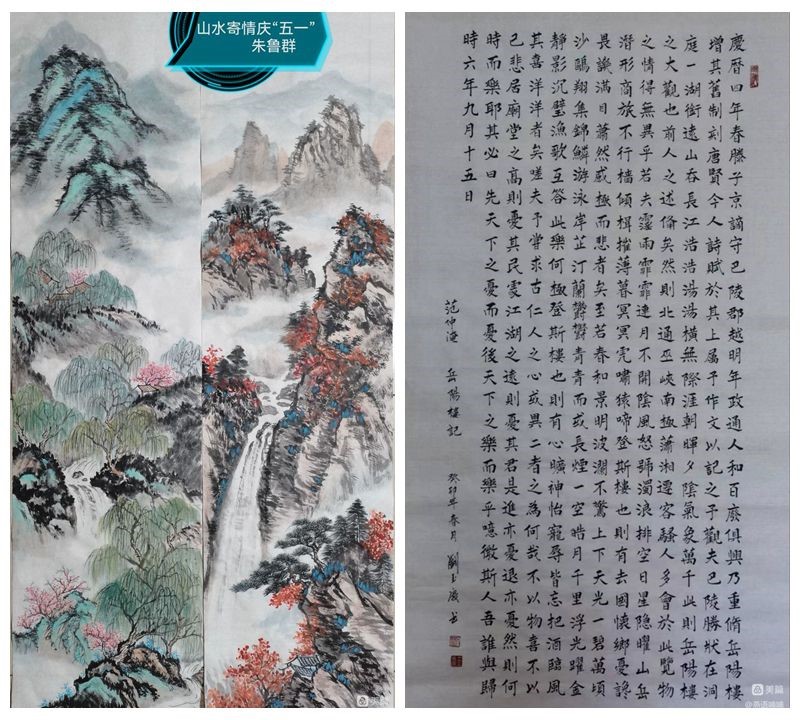 山水寄情庆“五一”
朱鲁群
慶曆四年春滕子京謫守巴陵郡越明年政通人和百廢俱興乃重脩岳陽樓
增其舊制刻唐賢今人詩賦於其上屬予作文以記之予觀夫巴陵勝狀在洞
庭一湖銜遠山吞長江浩浩湯湯橫無際涯朝暉夕陰氣象萬千此則岳陽樓
之大觀也前人之述備矣然則北通巫峽南極瀟湘遷客騷人多會於此覽物
之情得無異乎若夫霪雨霏霏連月不開陰風怒號濁浪排空日星隱曜山岳
潛形商旅不行檣傾楫摧薄暮冥冥虎嘯猿啼登斯樓也則有去國懷鄉憂讒
畏譏滿目蕭然感極而悲者矣至若春和景明波瀾不驚上下天光一碧萬頃
沙鷗翔集錦鱗游泳岸芷汀蘭鬱鬱青青而或長煙一空皓月千里浮光曜金
靜影沉璧漁歌互答此樂何極登斯樓也則有心曠神怡寵辱皆忘把酒臨風
其喜洋洋者矣嗟夫予嘗求古仁人之心或異二者之為何哉不以物喜不以
己悲居廟堂之高則憂其民處江湖之遠則憂其君是進亦憂退亦憂然則何
時而樂耶其必曰先天下之憂而憂後天下之樂而樂乎噫微斯人吾誰與歸
時六年九月十五日
范仲淹 岳陽樓記
癸卯年春月 劉玉
美篇
美篇
@燕语喃喃